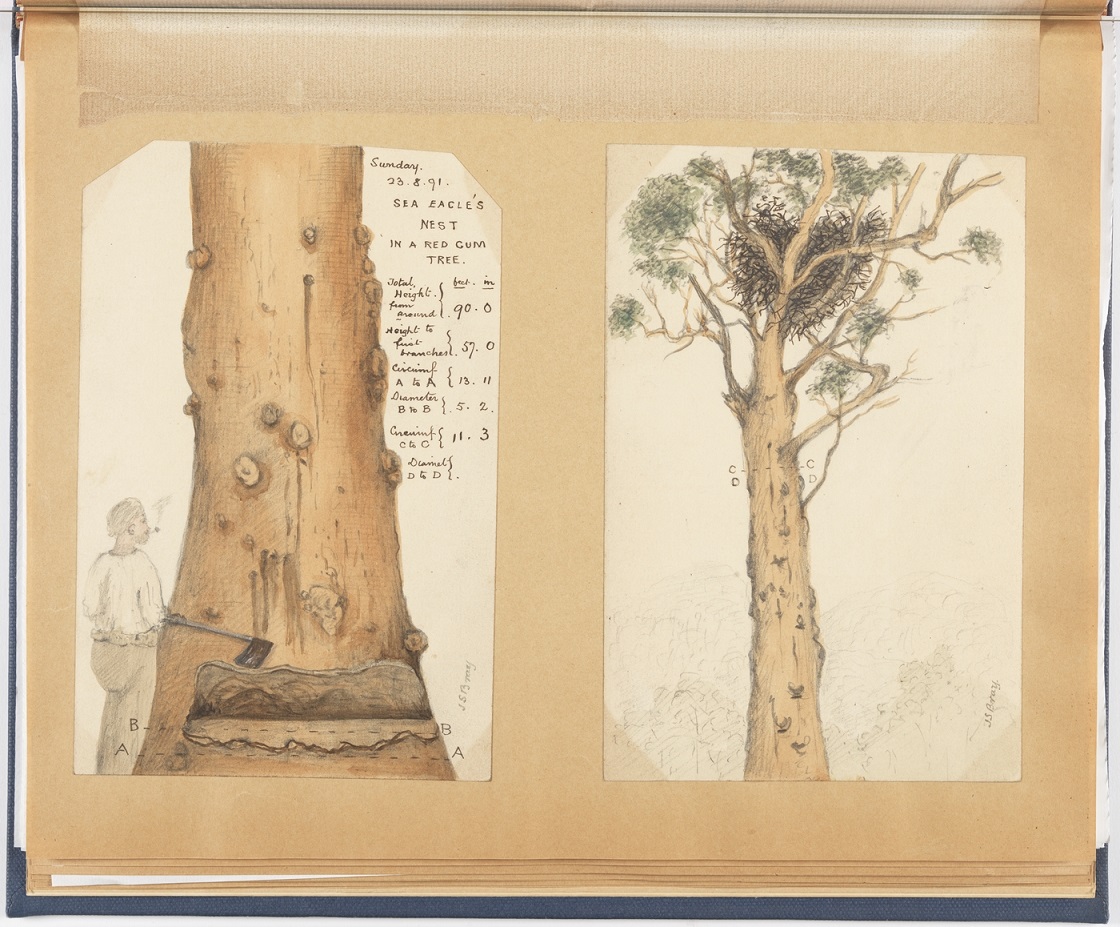 Sunday.
23.8.91.
SEA EAGLE'S
NEST
IN A RED GUM
TREE.
Total feet. in
Height
from
ground } 90. 0
Height to
first
branches. } 57. 0
Circumf
A to A } 13. 11
Diameter
B to B } 5. 2.
Circumf
C to C } 11. 3
Diamet
D to D }
B B
A A
C C
D D